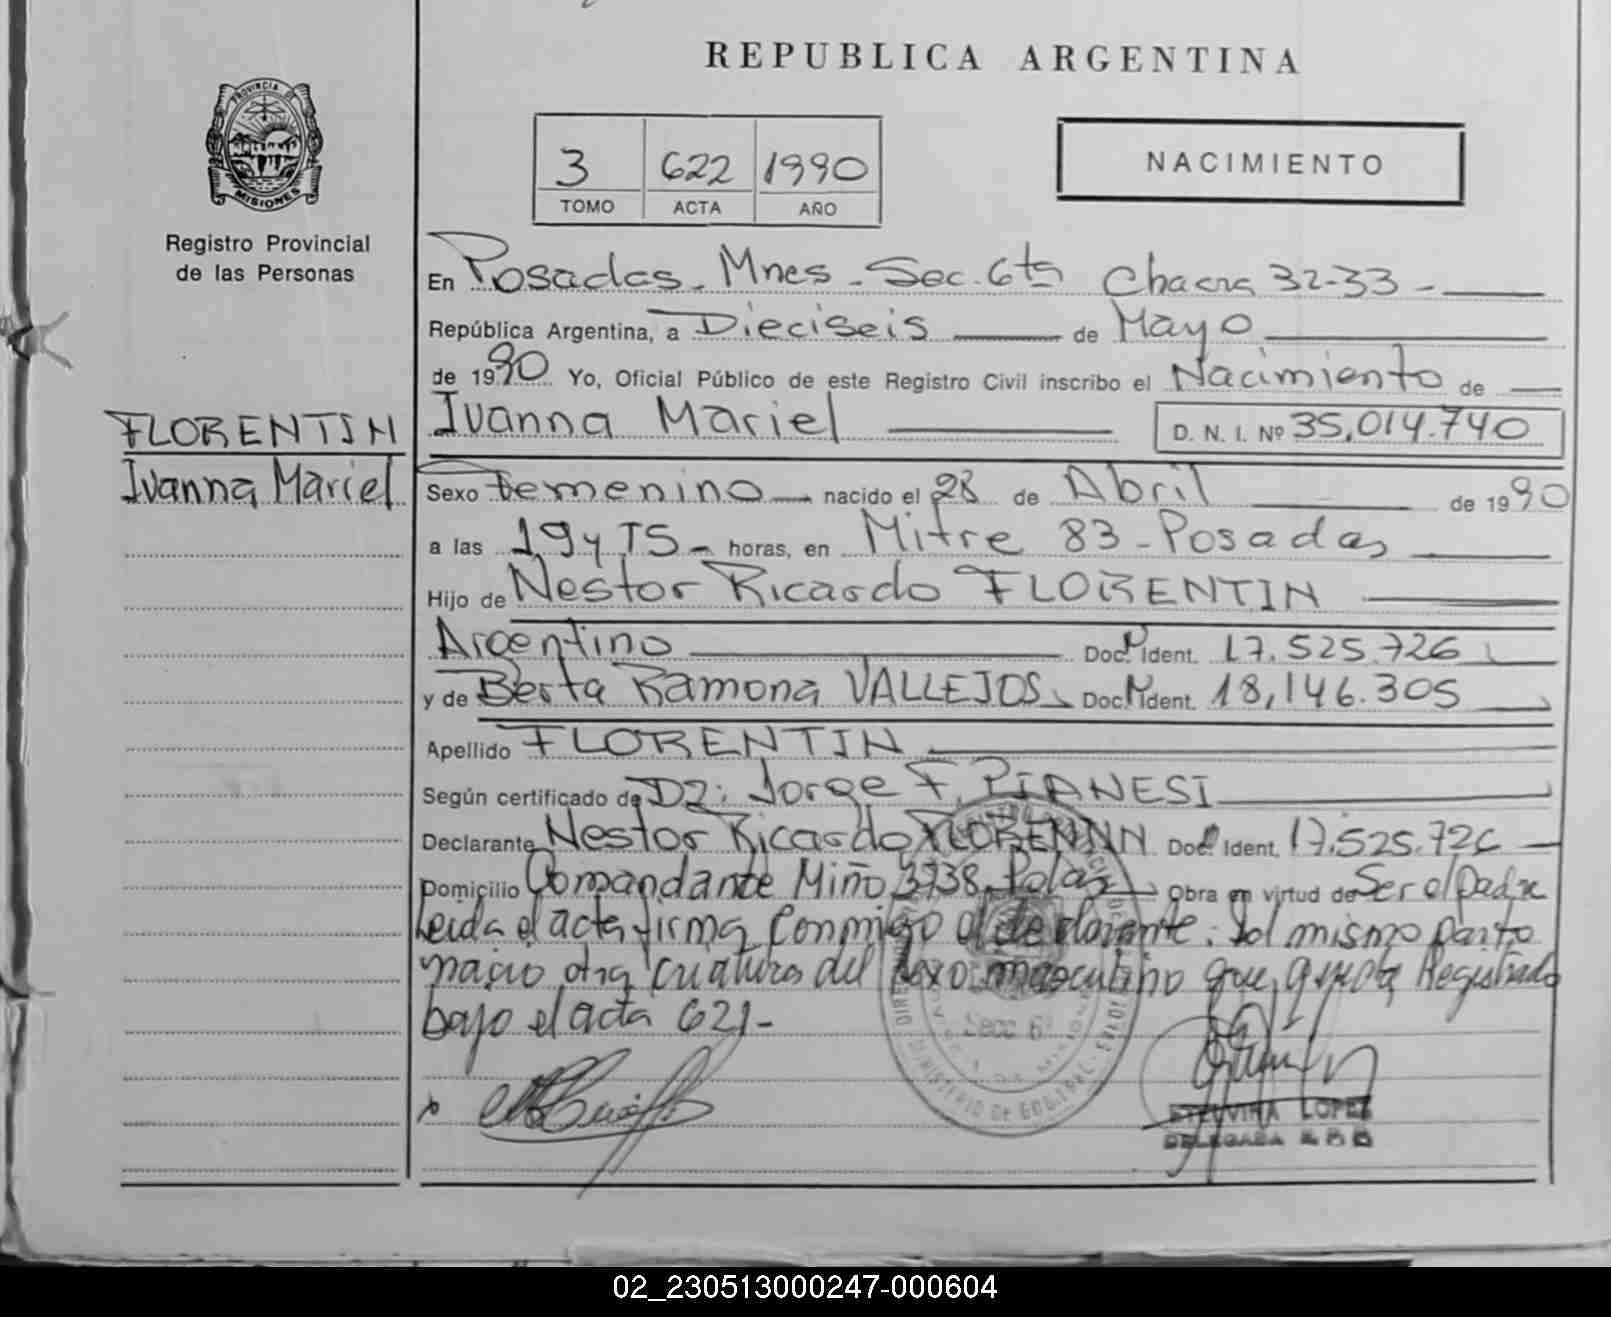 REPUBLICA ARGENTINA
PROVINCIA DE
MISIONES
Registro Provincial
de las Personas
3 622 1990
TOMO ACTA AÑO
NACIMIENTO
En Posadas. Mnes - Sec. 6ta Chacra 32-33 -
República Argentina, a Dieciseis de Mayo
de 1990 Yo, Oficial Público de este Registro Civil inscribo el Nacimiento de
Ivanna Mariel D. N. I. Nº 35,014.740
FLORENTIN
Ivanna Mariel
Sexo Femenino nacido el 28 de Abril de 1990
a las 19 y 15 - horas, en Mitre 83 - Posadas
Hijo de Nestor Ricardo FLORENTIN
Argentino Doc. Ident. 17.525.726
y de Berta Ramona VALLEJOS Doc. Ident. 18,146.305
Apellido FLORENTIN
Según certificado de Dr: Jorge F. PIANESI
Declarante Nestor Ricardo FLORENTIN Doc. Ident. 17.525.726
Domicilio Comandante Miño 3738, Obra en virtud de Ser el Padre
Leida el acta firma conmigo el declarante. Del mismo parto
nacio otra criatura del sexo masculino que queda Registrado
bajo el acta 621-
SECC 6
MINISTERIO DE GOB.
ETELVINA LOPEZ
DELEGADA
02_230513000247-000604